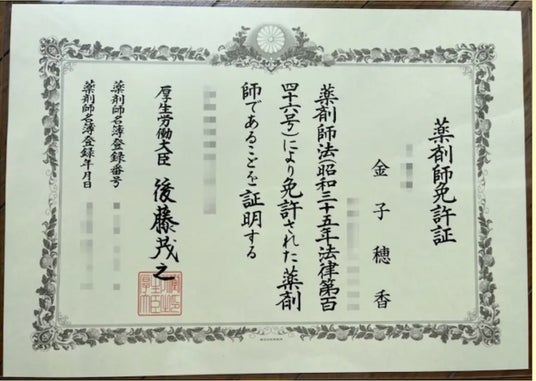 薬剤師免許証
金子穂香
薬剤師法(昭和三十五年法律第百
四十六号)により免許された薬剤
師であることを証明する
厚生労働大臣 後藤茂之
薬剤師名簿登録番号
薬剤師名簿登録年月日